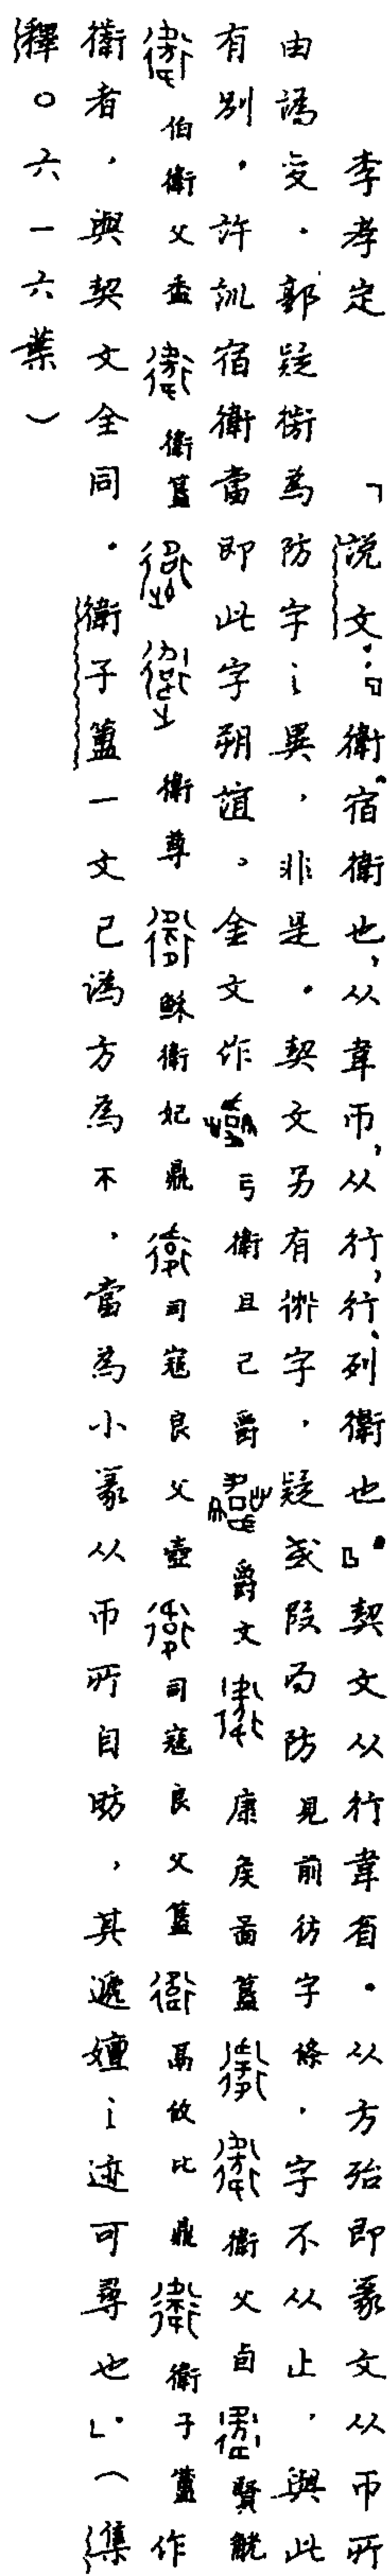 李孝定 「說文：『衛，宿衛也，从韋帀，从行，行、列衛也。』契文从行韋省。从方殆即篆文从帀所
由譌变。郭疑衛為防字之異，非是。契文另有字，疑或叚為防見前彷字條。字不从止，與此
有別。許訓宿衛當即此字朔誼。金文作弓衛且己爵 爵文 康侯啚簋 衛父卣 賢觥
伯衛父盉 衛簋 衛尊 穌衛妃鼎 司寇良父壺 司寇良父簋 鬲攸比鼎 衛子簠作
衛者，與契文全同。衛子簠一文已譌方為不，當為小篆从帀所自昉，其遞嬗之迹可尋也」。（集
釋〇六一六葉）